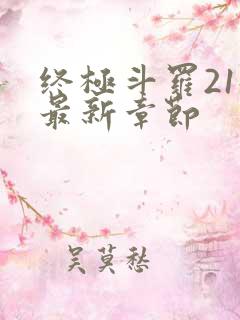 终极斗罗21
最新章节
吴莫愁